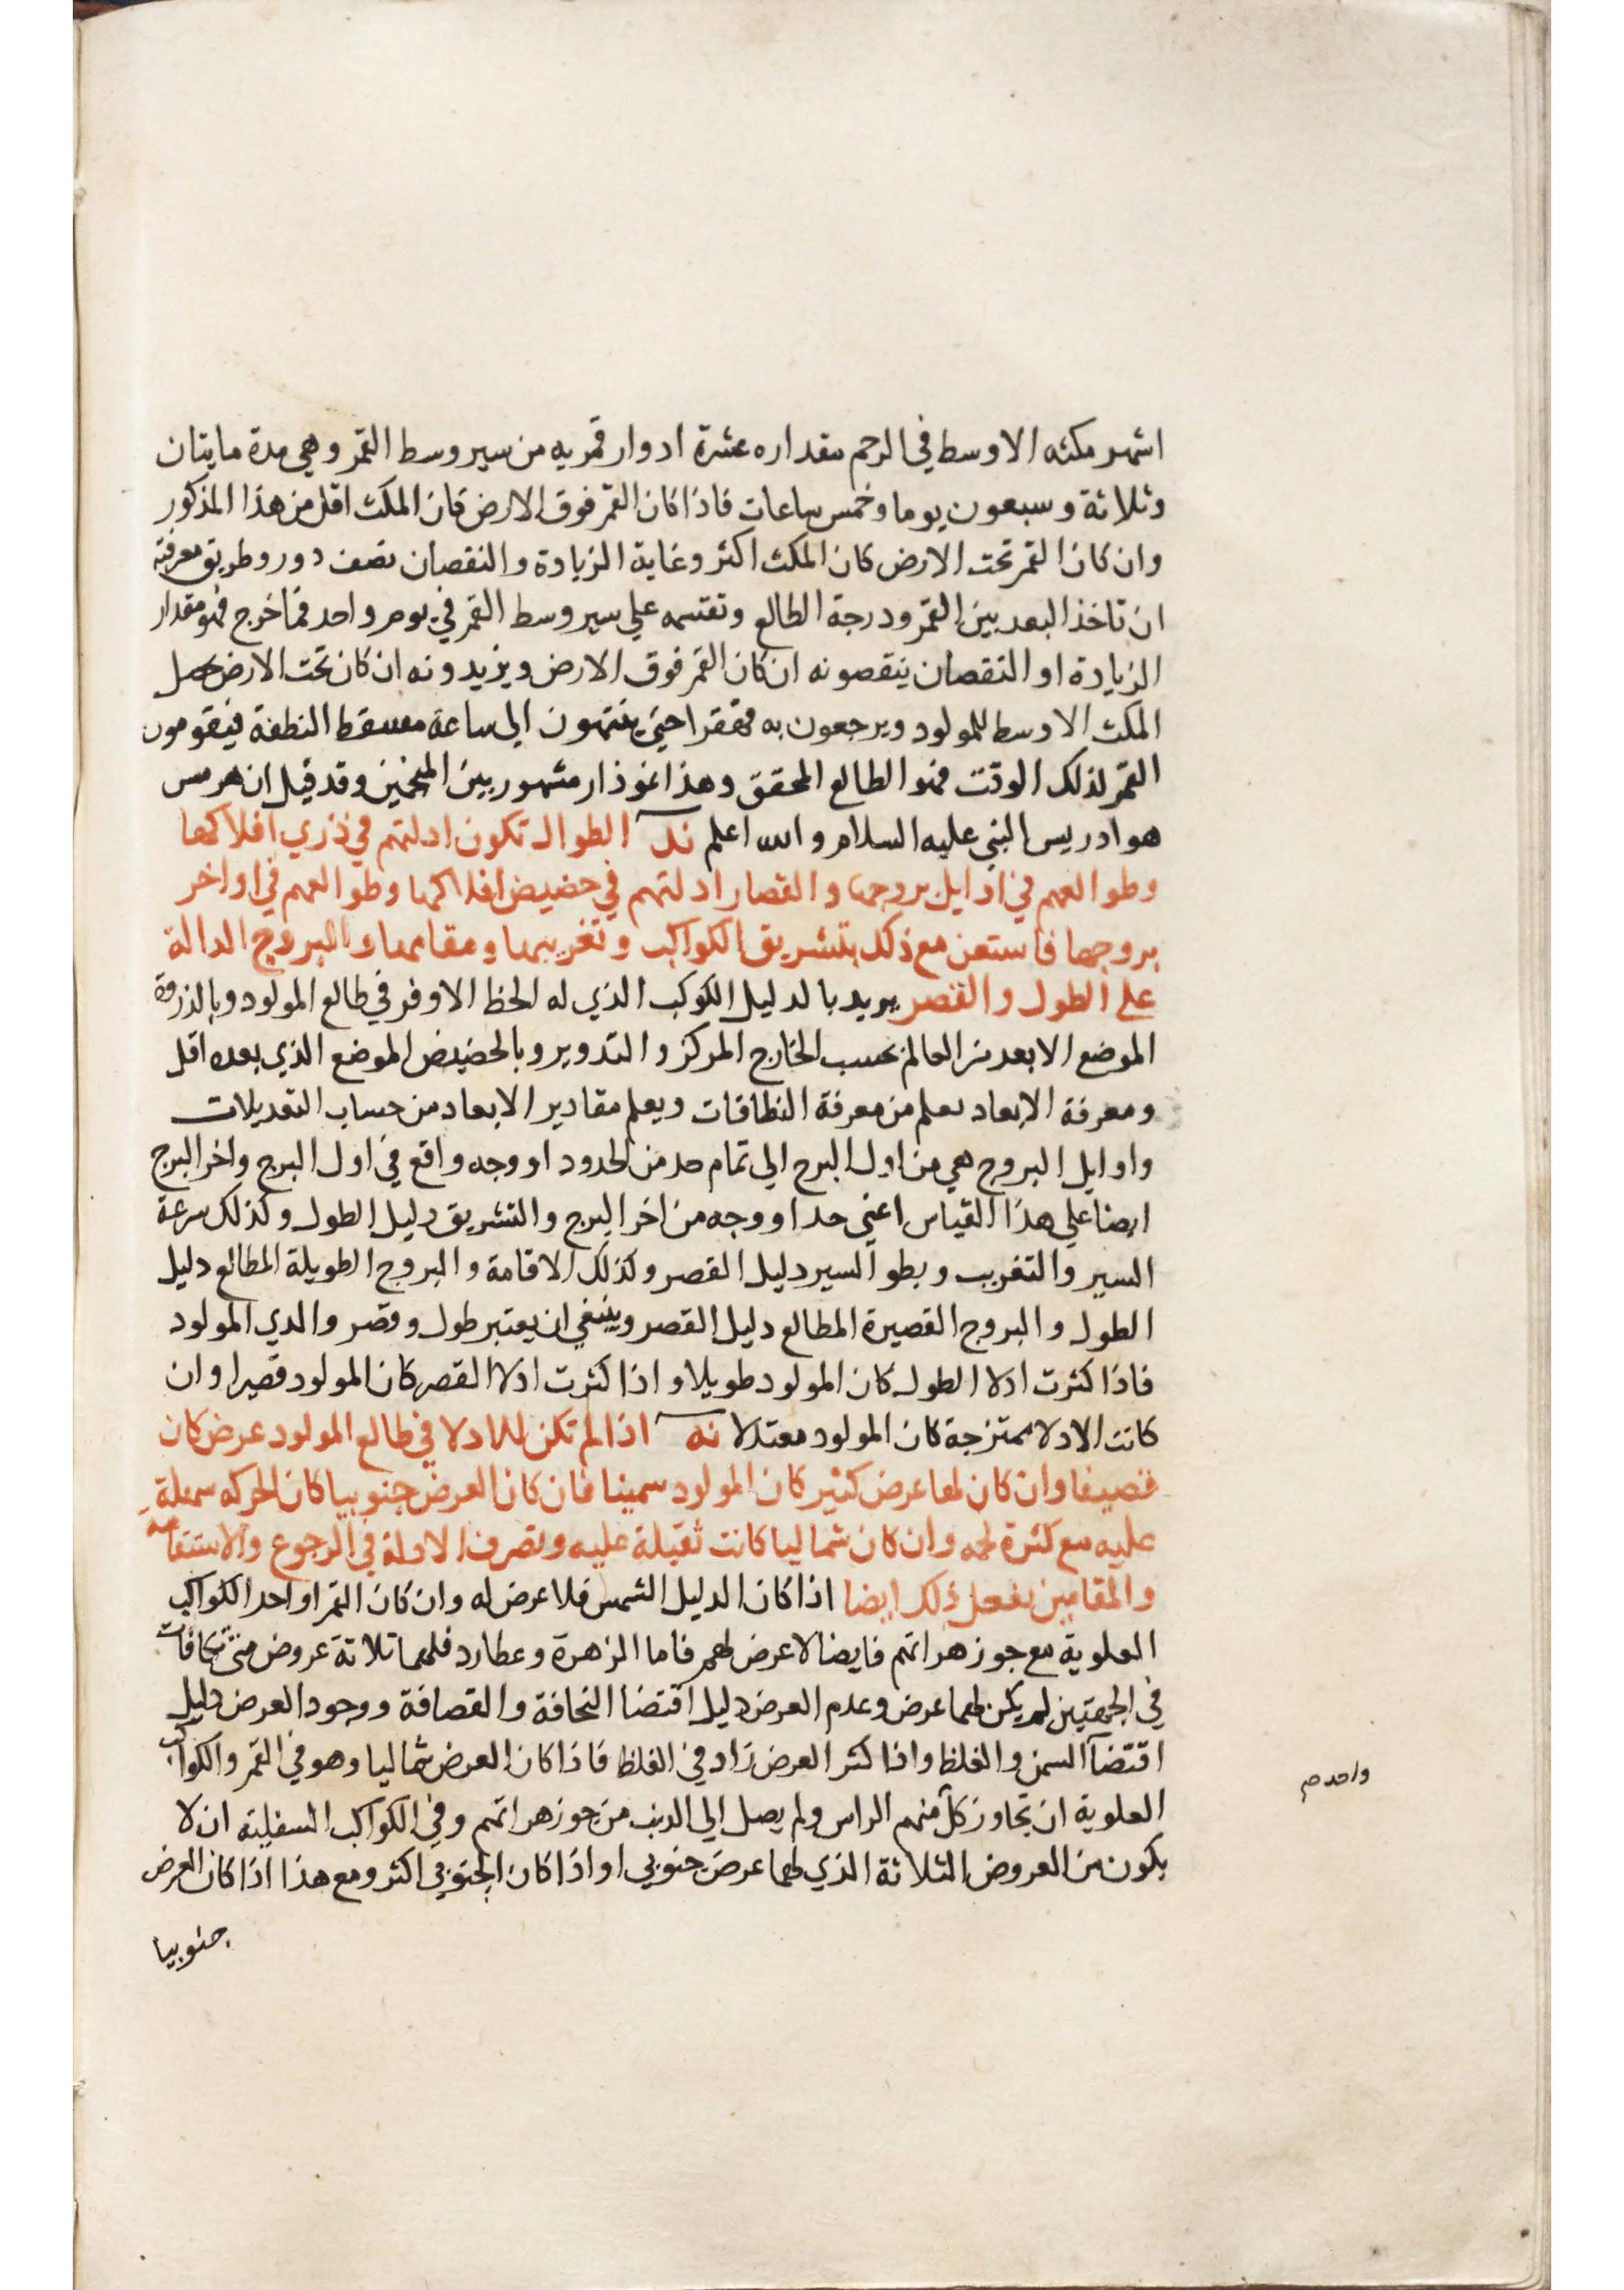 اشهر مكثه الاوسط في الرحم مقداره عشرة ادوار قمريه من سير وسط القمر وهي مدة مايتان
وثلاثة وسبعون يوما وخمس ساعات فاذا كان القمر فوق الارض كان المكث اقل من هذا المذكور
وان كان القمر تحت الارض كان المكث اكثر وغاية الزيادة والنقصان نصف دور وطريق معرفته
ان تاخذ البعد بين القمر ودرجة الطالع وتقتسمه علي سير وسط القمر في يوم واحد فما خرج فهو مقدار
الزيادة او النقصان ينقصونه ان كان القمر فوق الارض ويزيدونه ان كان تحت الارض حصل
المكث الاوسط للمولود ويرجعون به قهقرا حتي ينتهون الي ساعة مسقط النطفة فيقومون
القمر لذلك الوقت فهو الطالع المحقق وهذا نموذار مشهور بين المنجمين وقد قيل ان هرمس
هو ادريس النبي عليه السلام والله اعلم ند الطوال تكون ادلتهم في ذري افلاكها
وطوالعهم في اوايل بروجها والقصار ادلتهم في حضيض افلاكها وطوالعهم في اواخر
بروجها فاستعن مع ذلك بتشريق الكواكب وتغريبها ومقامها والبروج الدالة
علي الطول والقصر يريد بالدليل الكوكب الذي له الحظ الاوفر في طالع المولود وبالذروة
الموضع الابعد من العالم بحسب الخارج المركز والتدوير وبالحضيض الموضع الذي بعده اقل
ومعرفة الابعاد يعلم من معرفة النطاقات ويعلم مقادير الابعاد من حساب التعديلات
واوايل البروج هي من اول البرج الي تمام حد من الحدود او وجه واقع في اول البرج واخر البرج
ايضا علي هذا القياس اعني حدا ووجه من اخر البرج والتشريق دليل الطول وكذلك سرعة
السير والتغريب وبطو السير دليل القصر وكذلك الاقامة والبروج الطويلة المطالع دليل
الطول والبروج القصيرة المطالع دليل القصر وينبغي ان يعتبر طول وقصر والدي المولود
فاذا كثرت ادلا الطول كان المولود طويلا واذا كثرت ادلا القصر كان المولود قصيرا وان
كانت الادلا ممتزجة كان المولود معتدلا نه اذا لم تكن للادلا في طالع المولود عرض كان
قصيفا وان كان لها عرض كثير كان المولود سمينا فان كان العرض جنوبيا كان الحركه سهلة
عليه مع كثرة لحمه وان كان شماليا كانت ثقيلة عليه وتصرف الادلة في الرجوع والاستقامه
والمقامين يفعل ذلك ايضا اذا كان الدليل الشمس فلا عرض له وان كان القمر او احد الكواكب
العلوية مع جوزهراتهم فايضا لا عرض لهم فاما الزهرة وعطارد فلهما ثلاثة عروض متي تكافات
في الجهتين لم يكن لهما عرض وعدم العرض دليل اقتضا النحافة والقصافة ووجود العرض دليل
اقتضا السمن والغلظ واذا كثر العرض زاد في الغلظ فاذا كان العرض شماليا وهو في القمر والكواكب
العلوية ان تجاوز كل منهم الراس ولم يصل الي الذنب من جوزهراتهم وفي الكواكب السفلية ان لا
يكون من العروض الثلاثة الذي لهما عرض جنوبي او اذا كان الجنوبي اكثر ومع هذا اذا كان العرض
جنوبيا